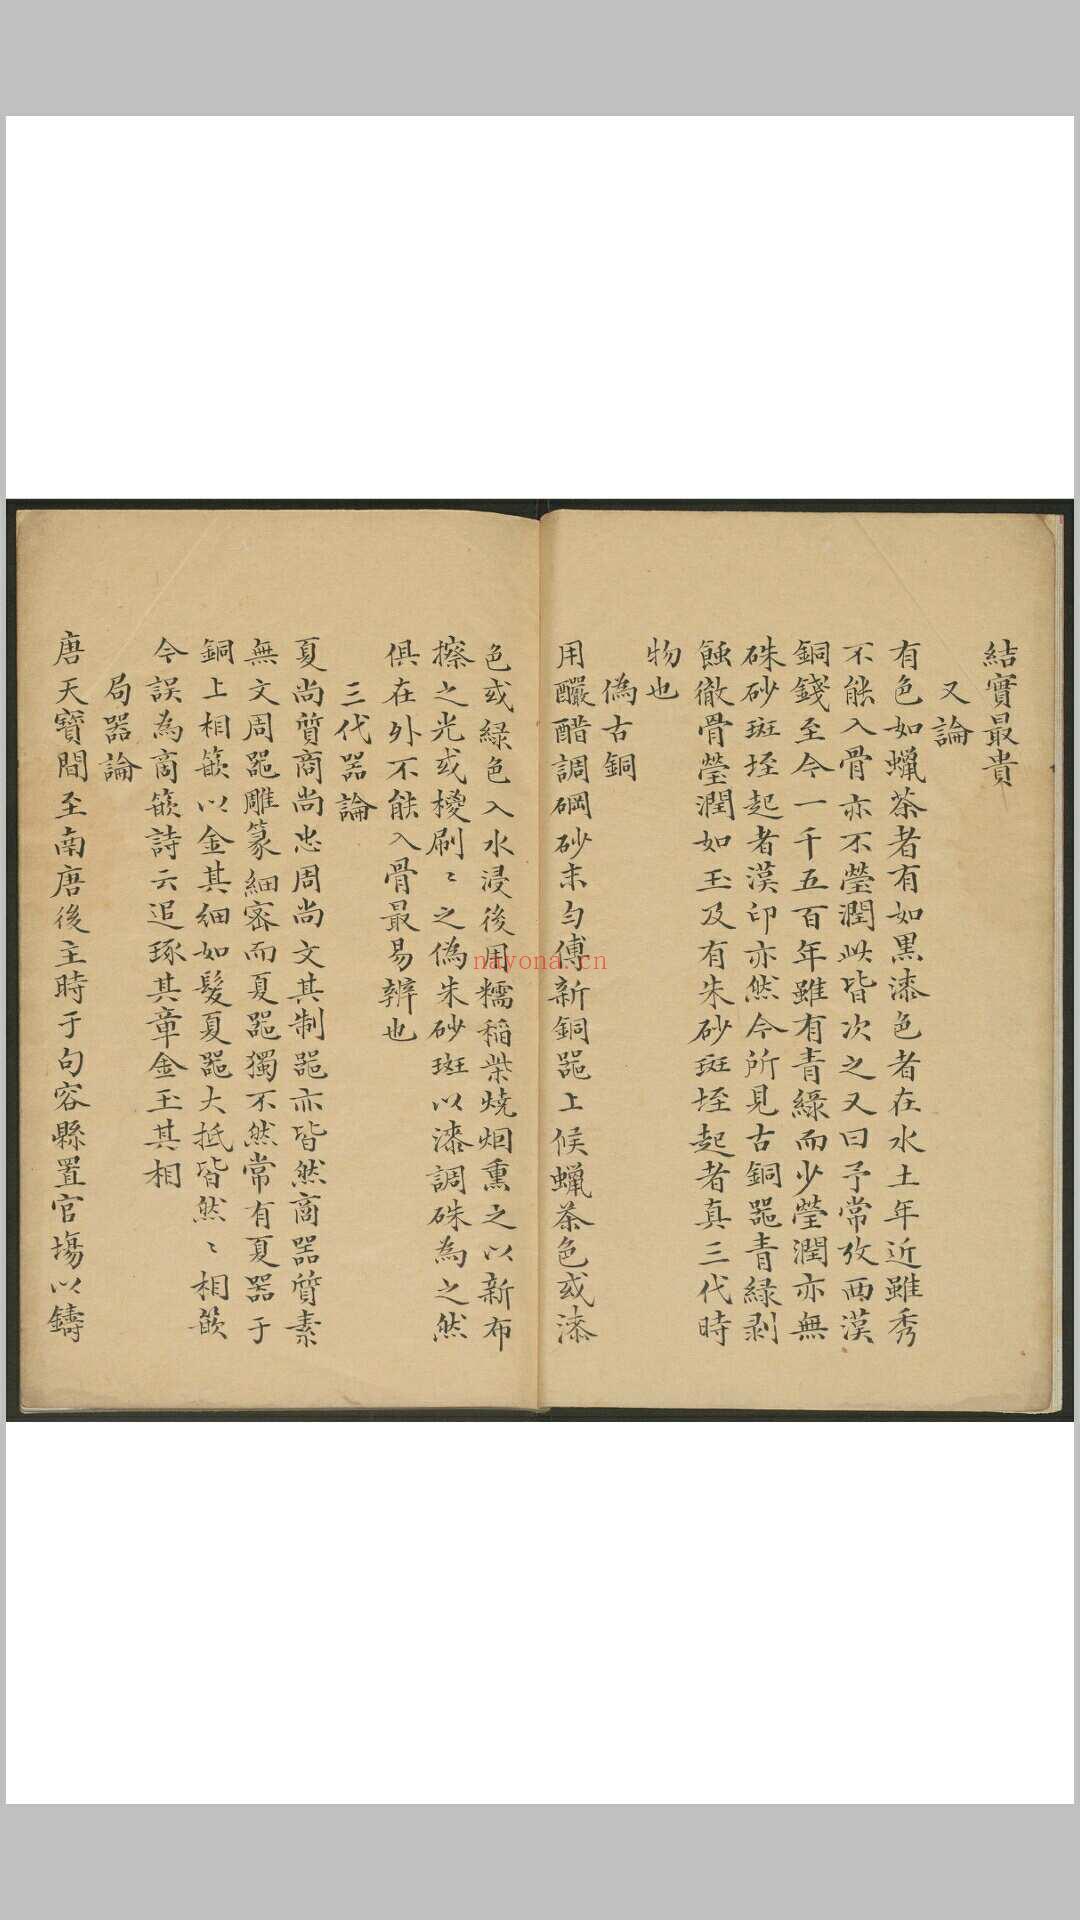 結實最貴
又論
有色如蠟茶者有如黒漆色者在水土年近雖秀
不能入骨亦不瑩潤此皆次之又曰予常攷西漢
銅錢至今一千五百年雖有青緑而少瑩潤亦無
硃砂斑垤起者漢印亦然今所見古銅器青緑剥
蝕徹骨瑩潤如玉及有朱砂斑垤起者真三代時
物也
偽古銅
用釅醋調碙砂末勻傅新銅器上候蠟茶色或漆
色或緑色入水浸後用糯稻柴燒烟熏之以新布
擦之光或椶刷〻之偽朱砂斑以漆調硃為之然
俱在外不能入骨最易辨也
三代器論
夏尚質商尚忠周尚文其制器亦皆然商器質素
無文周器雕篆細密而夏器獨不然常有夏器于
銅上相篏以金其細如髮夏器大抵皆然〻相篏
今誤為商篏詩云追琢其章金玉其相
局器論
唐天寳間至南唐後主時于句容縣置官塲以鑄
nayona.cn